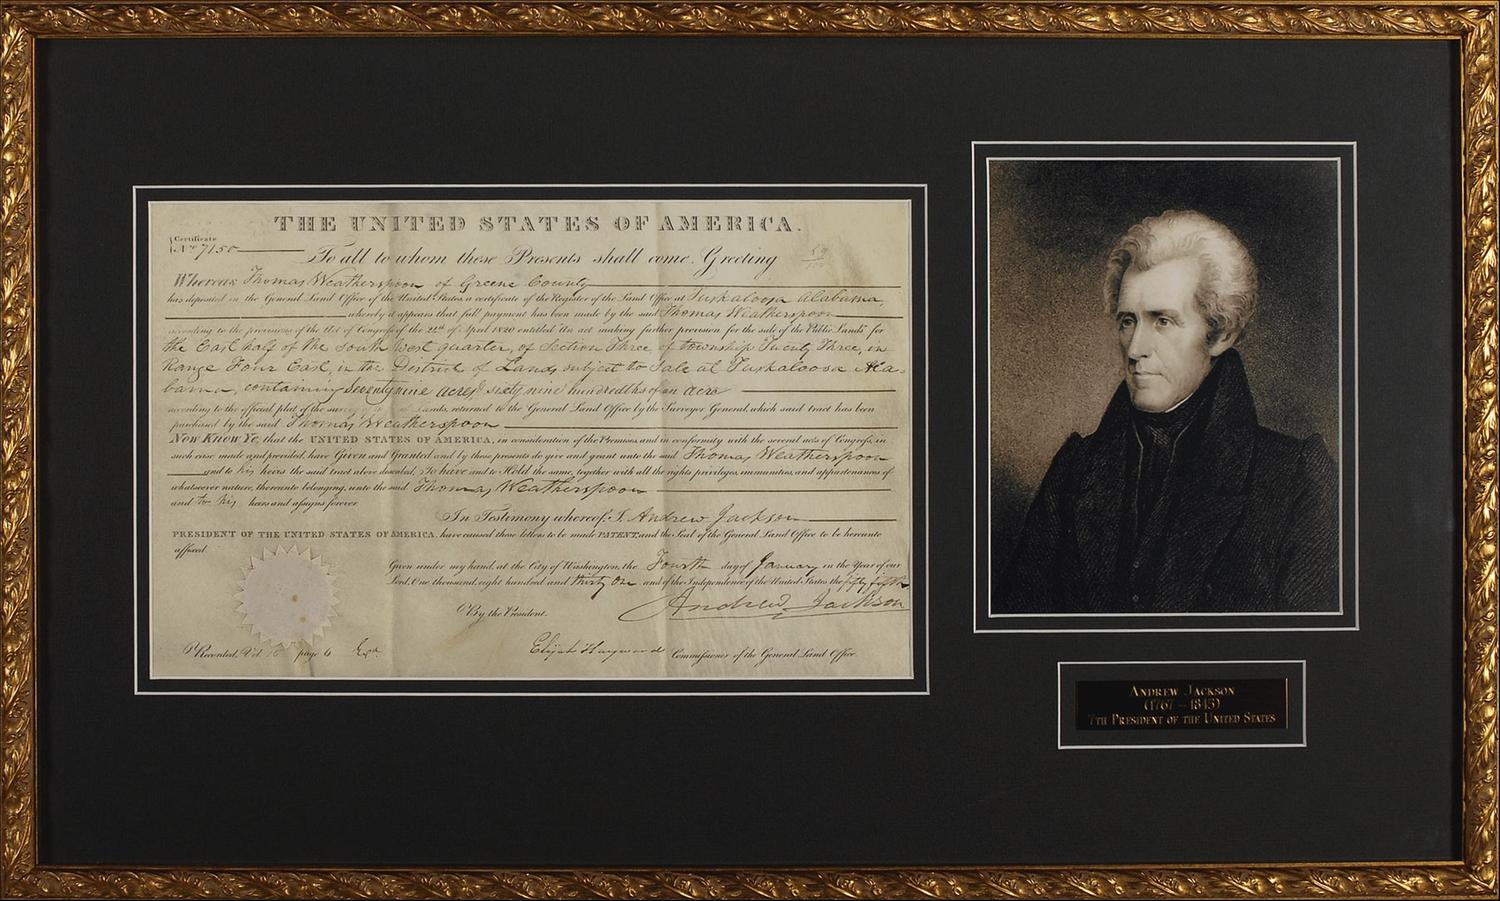 THE UNITED STATES OF AMERICA.
Certificate
No. 7150
To all to whom these Presents shall come, Greeting
Whereas Thomas Weatherspoon of Greene County
has deposited in the General Land Office of the United States, a certificate of the Register of the Land Office at Tuskaloosa Alabama,
whereby it appears that full payment has been made by the said Thomas Weatherspoon
according to the provisions of the Act of Congress of the 24th of April 1820 entitled "An act making further provision for the sale of the Public Lands" for
the East half of the South West quarter, of Section Three, of township Twenty Three, in
Range Four East, in the District of Lands subject to Sale at Tuskaloosa Ala-
bama, containing Seventy nine acres, sixty nine hundredths of an acre
according to the official plat of the survey of Lands, returned to the General Land Office by the Surveyor General, which said tract has been
purchased by the said Thomas Weatherspoon
Now Know Ye, that the UNITED STATES OF AMERICA, in consideration of the Premises, and in conformity with the several acts of Congress, in
such case made and provided, have Given and Granted and by these presents do give and grant unto the said Thomas Weatherspoon
and to his heirs the said tract above described, To have and to Hold the same, together with all the rights, privileges, immunities, and appurtenances of
whatsoever nature, thereunto belonging, unto the said Thomas Weatherspoon
and to his heirs and assigns forever
In Testimony whereof, I, Andrew Jackson
PRESIDENT OF THE UNITED STATES OF AMERICA, have caused these letters to be made PATENT, and the Seal of the General Land Office to be hereunto
affixed.
Given under my hand, at the City of Washington, the Fourth day of January in the Year of our
Lord, One thousand, eight hundred and thirty One and of the Independence of the United States the fifty fifth
Andrew Jackson
By the President.
Elijah Hayward Commissioner of the General Land Office
Recorded, Vol page 6
ANDREW JACKSON
(1767 - 1845)
7TH PRESIDENT OF THE UNITED STATES